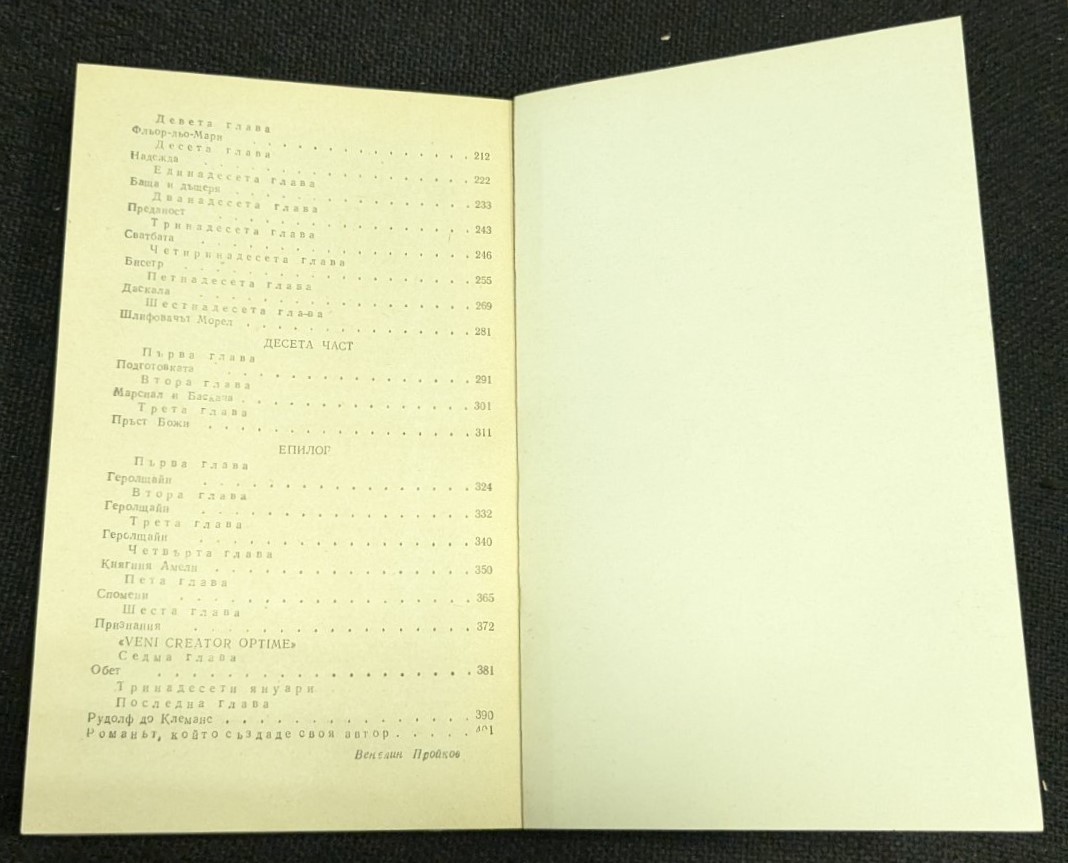 Девета глава
Фльор-дьо-Мари . . . . . . . . . . . . . . 212
Десета глава
Надежда . . . . . . . . . . . . . . 222
Единадесета глава
Баща и дъщеря . . . . . . . . . . . . . . 233
Дванадесета глава
Преданост . . . . . . . . . . . . . . 243
Тринадесета глава
Сватбата . . . . . . . . . . . . . . 246
Четиринадесета глава
Бисетр . . . . . . . . . . . . . . 255
Петнадесета глава
Даскала . . . . . . . . . . . . . . 269
Шестнадесета глава
Шлифовачът Морел . . . . . . . . . . . . . . 281
ДЕСЕТА ЧАСТ
Първа глава
Подготовката . . . . . . . . . . . . . . 291
Втора глава
Марсиал и . . . . . . . . . . . . . . 301
Трета глава
Пръст Божи . . . . . . . . . . . . . . 311
ЕПИЛОГ
Първа глава
Геролщайн . . . . . . . . . . . . . . 324
Втора глава
Геролщайн . . . . . . . . . . . . . . 332
Трета глава
Геролщайн . . . . . . . . . . . . . . 340
Четвърта глава
Княгиня Амели . . . . . . . . . . . . . . 350
Пета глава
Спомени . . . . . . . . . . . . . . 365
Шеста глава
Признания . . . . . . . . . . . . . . 372
«VENI CREATOR OPTIME»
Седма глава
Обет . . . . . . . . . . . . . . 381
Тринадесети януари
Последна глава
Рудолф до Клеманс . . . . . . . . . . . . . . 390
Романът, който създаде своя автор . . . . .
Венелин Пройков